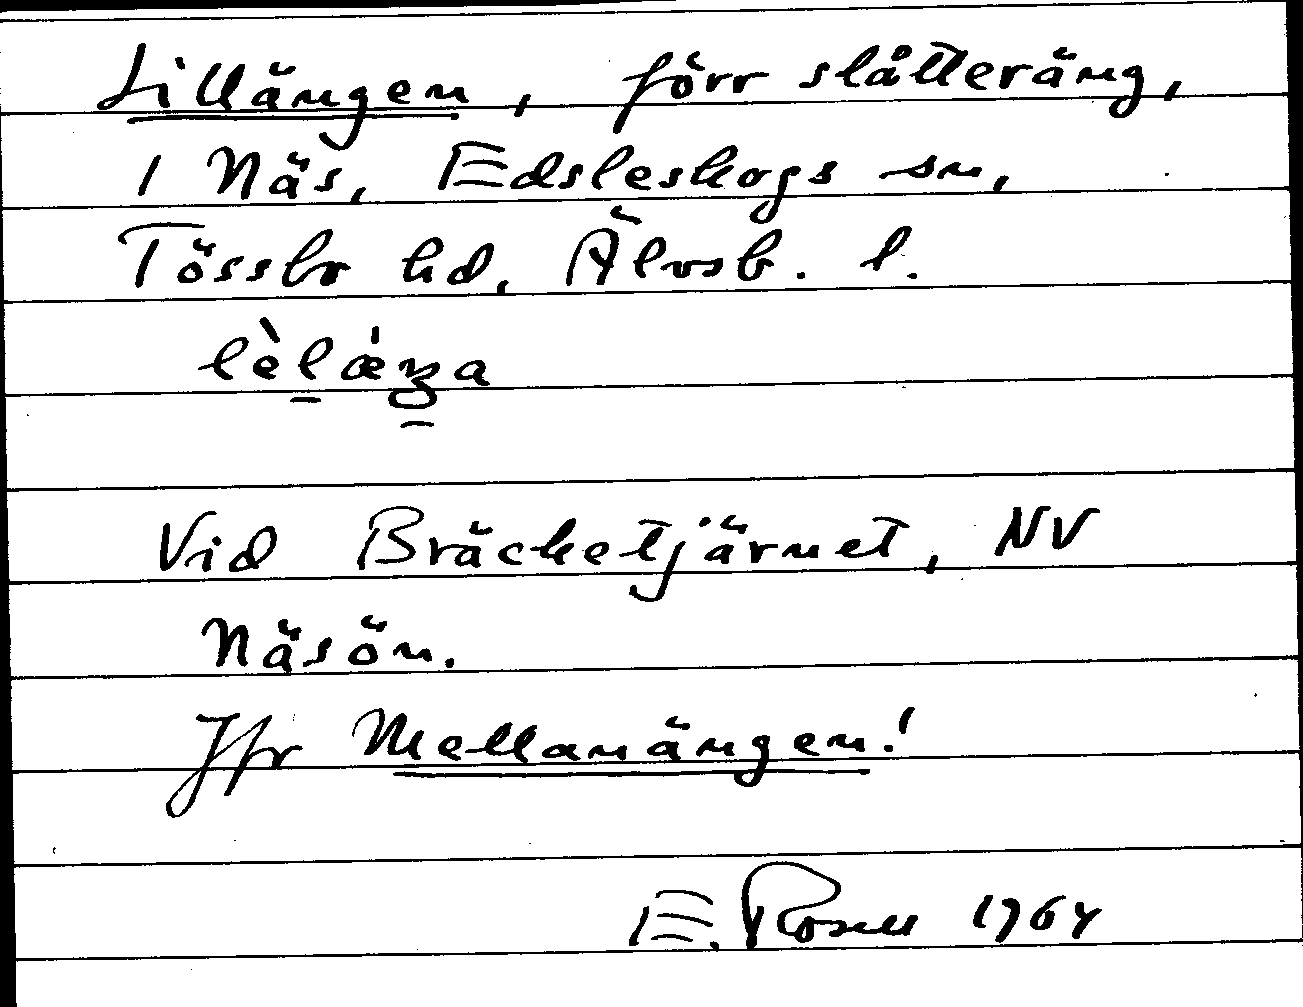 Lillängen, förr slåtteräng,
1 Näs, Edsleskogs sn,
Tössbo hd, Älvsb. l.
Vid Bräcketjärnet, NV
Näsön.
Jfr Mellanängen!
E. Rosell 1964